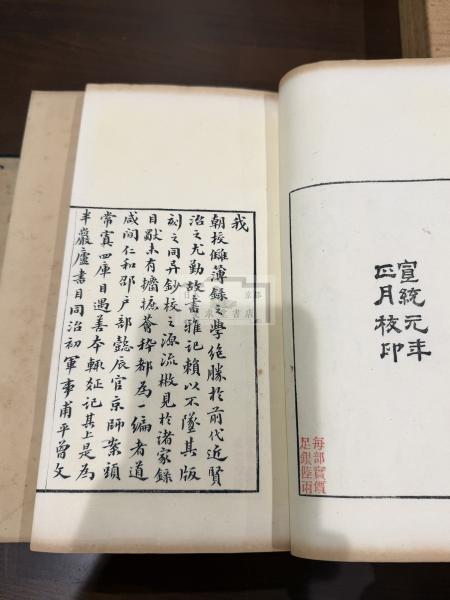 宣統元年
正月校印
每部實價
足銀陸兩
我
朝校讎簿錄之學絶勝於前代近賢
治之尤勤故書雅記賴以不墜其版
刻之同异鈔校之源流散見於諸家錄
目猷未有攟摭薈稡都爲一編者道
咸間仁和邵戶部懿辰官京師案頭
常寘四庫目遇善本輒疏記其上是爲
半巖廬書目同治初軍事甫平曾文
京都
書店